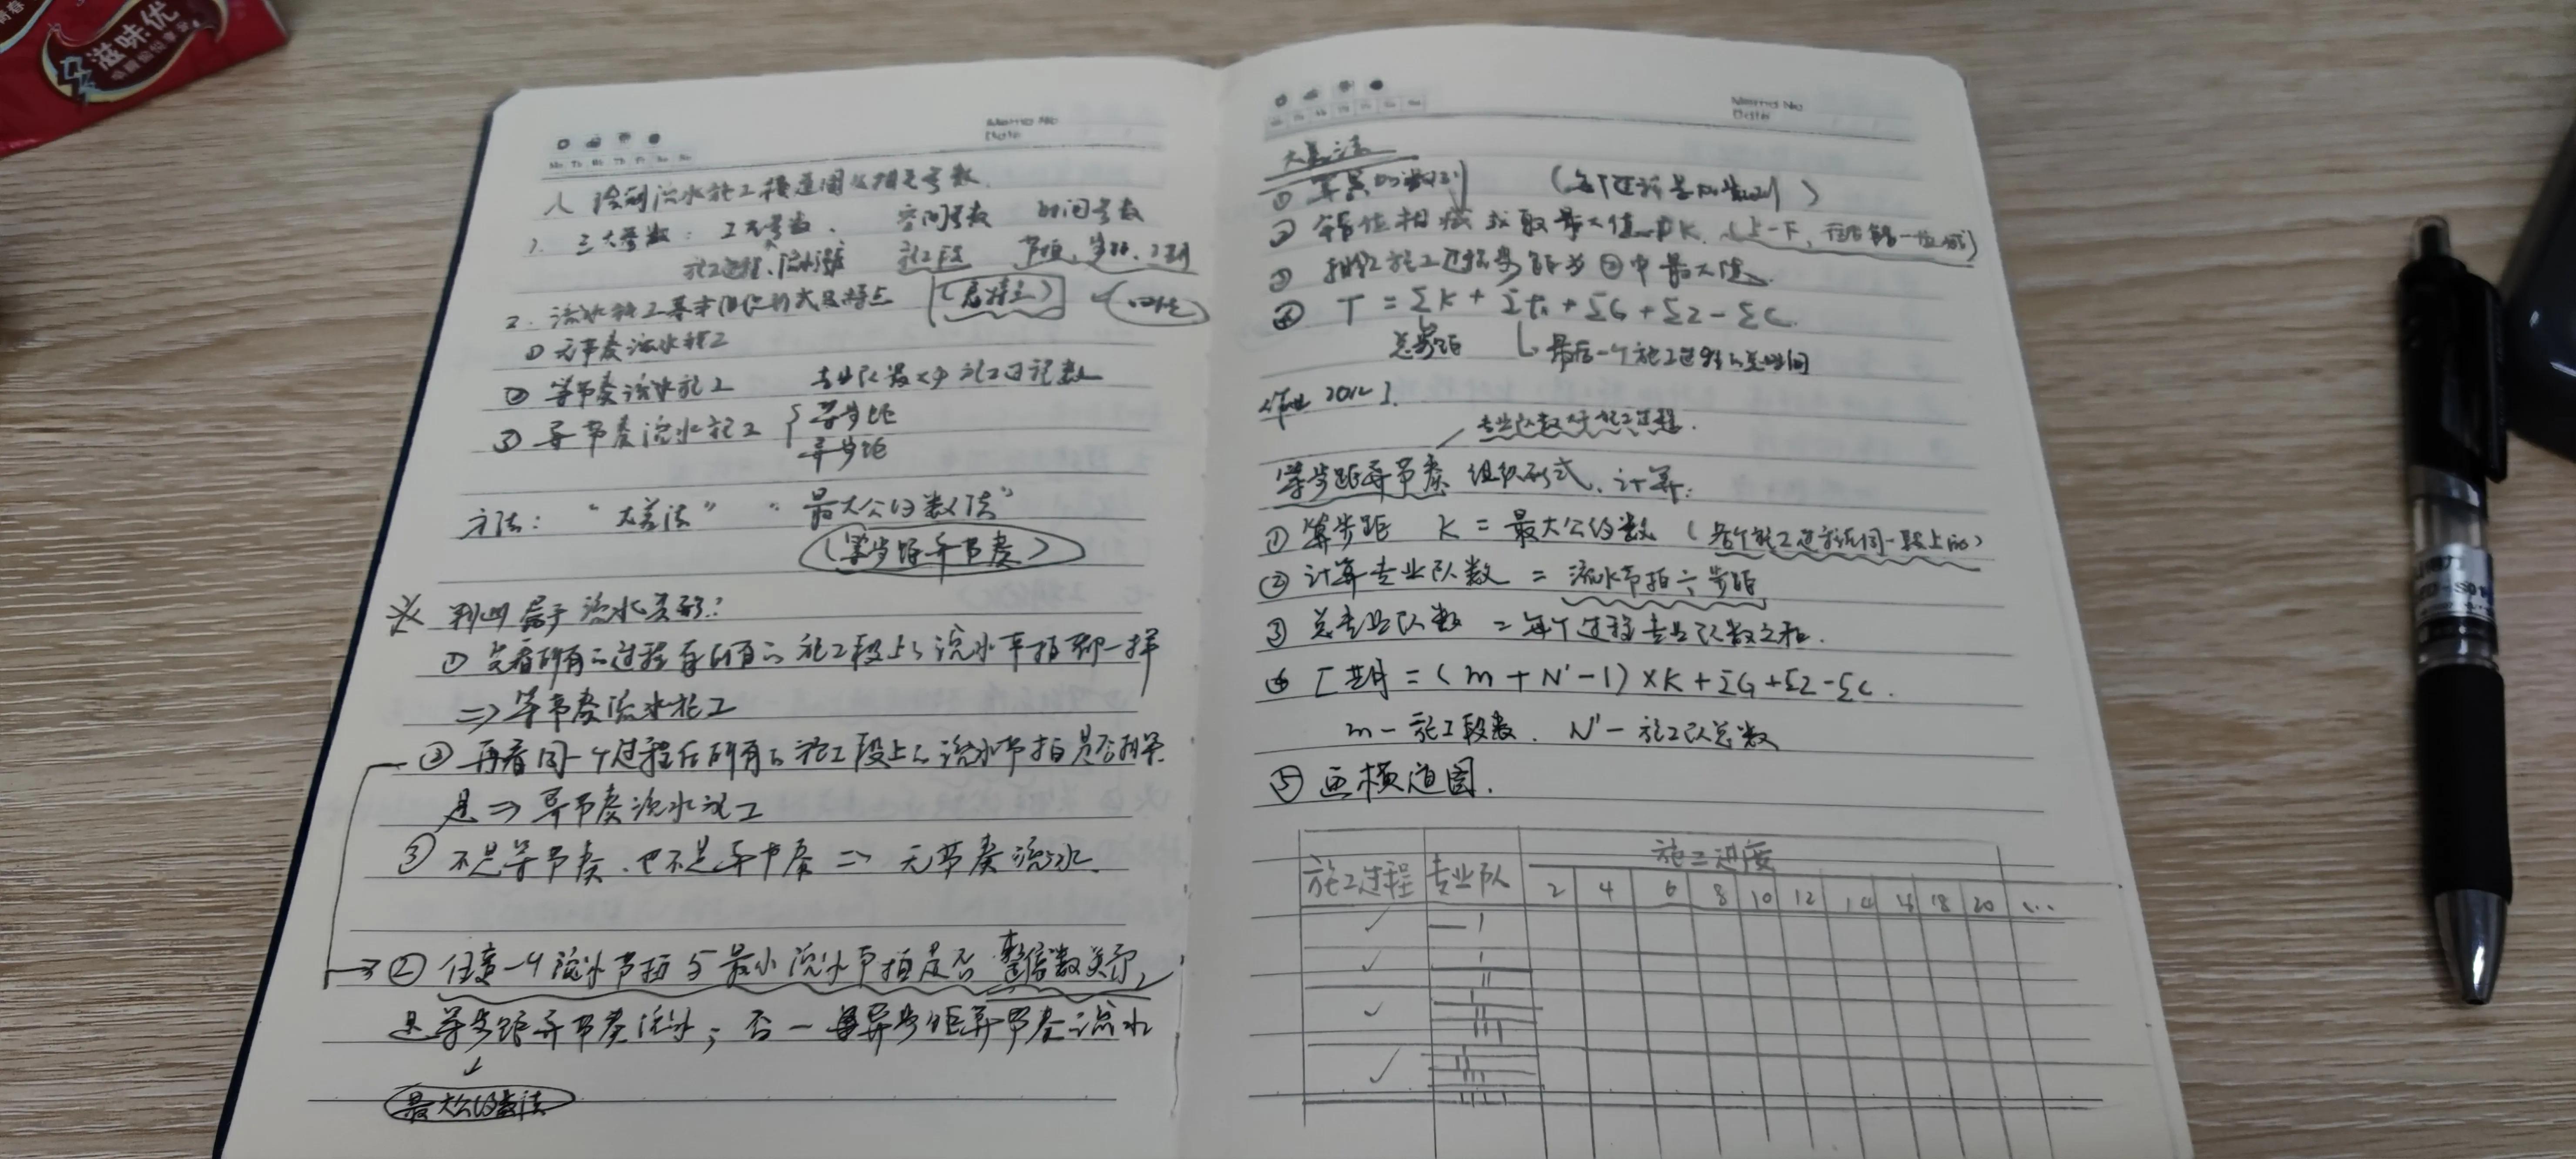 滋味·优
Memo No
Date
Mo Tu We Th Fr Sa Su
绘制流水施工横道图及相关参数.
1. 三大参数: 工艺参数、 空间参数 时间参数
施工过程、流水强度 施工段 节拍、步距、工期
2. 流水施工基本组织形式及特点
① 无节奏流水施工
② 等节奏流水施工 专业队数 施工过程数
③ 异节奏流水施工 { 等步距
异步距
方法: “大差法” “最大公约数法”
(等步距异节奏)
※ 判断属于流水类形:
① 先看所有的过程在所有的施工段上的流水节拍都一样
⇒ 等节奏流水施工
② 再看同一个过程在所有的施工段上的流水节拍是否相等.
是 ⇒ 异节奏流水施工
③ 不是等节奏、也不是异节奏 ⇒ 无节奏流水.
→② 任意一个流水节拍与最小流水节拍是否整倍数关系,
是等步距异节奏流水; 否一异步距异节奏流水
↓
最大公约数法
Memo No
Date
大差法
① 累累的数列 ( )
② 错位相减求取最大值 K.
③ 相邻施工过程步距为②中最大值.
④ T = ΣK + Σtn + ΣG + ΣZ - ΣC.
总步距 最后一个施工过程的总时间
作业 2012
专业队数大于施工过程.
等步距异节奏 组织形式、计算:
① 算步距 K = 最大公约数 (各个施工过程在同一段上的)
② 计算专业队数 = 流水节拍 ÷ 步距
③ 总专业队数 = 每个过程专业队数之和.
④ 工期 = (m + N' - 1) × K + ΣG + ΣZ - ΣC.
m - 施工段数. N' - 施工队总数
⑤ 画横道图.
施工过程 专业队 施工进度
2 4 6 8 10 12 14 16 18 20 ...
✓ I
✓ I
II
✓ I
II
III
✓ I
II
III
IIII